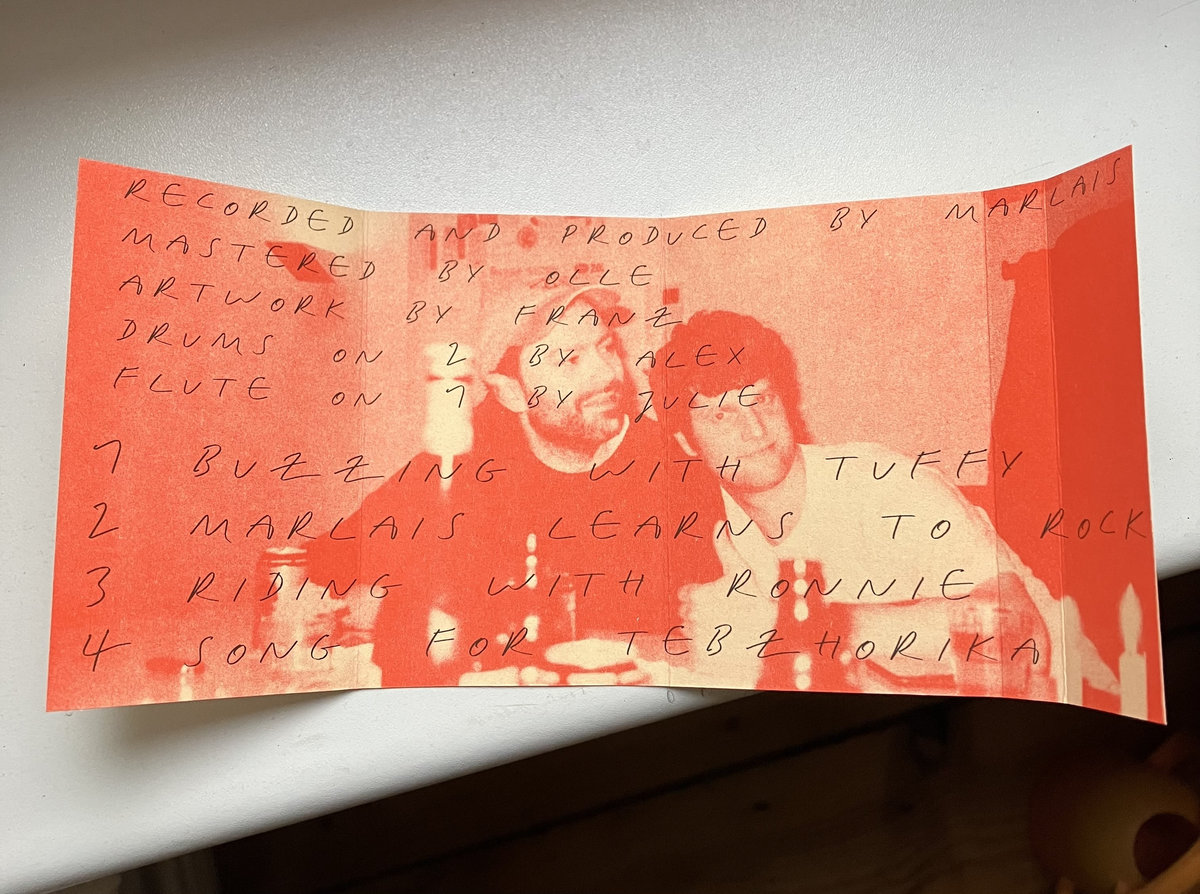 RECORDED AND PRODUCED BY MARLAIS
MASTERED BY OLLE
ARTWORK BY FRANZ
DRUMS ON 2 BY ALEX
FLUTE ON 1 BY JULIE
1 BUZZING WITH TUFFY
2 MARLAIS LEARNS TO ROCK
3 RIDING WITH RONNIE
4 SONG FOR TEBZHORIKA